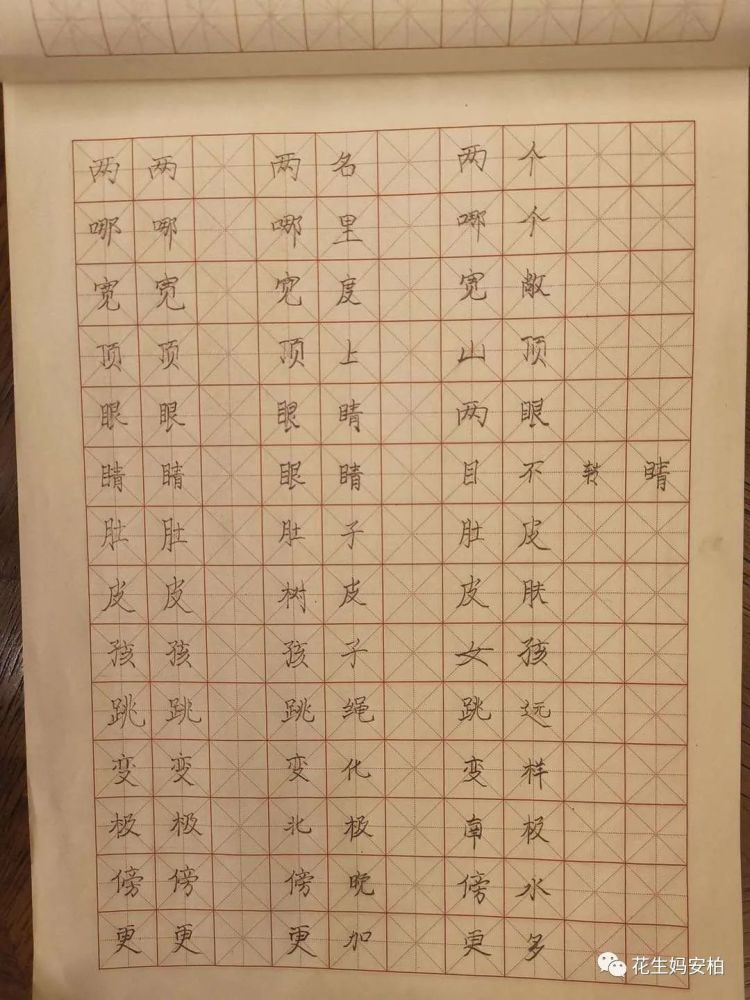 两两 两名 两个
哪哪 哪里 哪个
宽宽 宽度 宽敞
顶顶 顶上 山顶
眼眼 眼睛 两眼
睛睛 眼睛 目不转睛
肚肚 肚子 肚皮
皮皮 树皮 皮肤
孩孩 孩子 女孩
跳跳 跳绳 跳远
变变 变化 变样
极极 北极 南极
傍傍 傍晚 傍水
更更 更加 更多
花生妈安柏